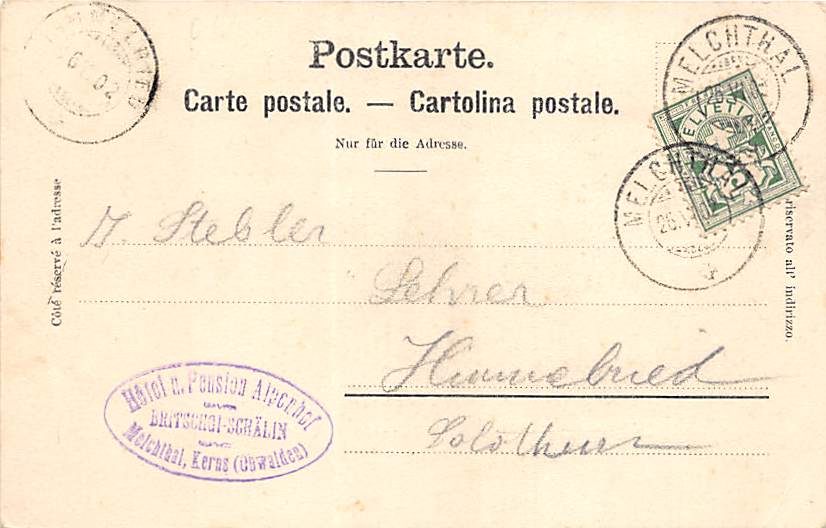 Postkarte.
Carte postale. — Cartolina postale.
Nur für die Adresse.
Côté réservé à l'adresse
riservato all' indirizzo.
MELCHTHAL
26.VI
HELVETIA
FRANCO
5
MELCHTHAL
26.VI
02
Stebler
Lehrer
Himmelried
Solothurn
Hôtel u. Pension Alpenhof
BRITSCHGI-SCHÄLIN
Melchthal, Kerns (Obwalden)